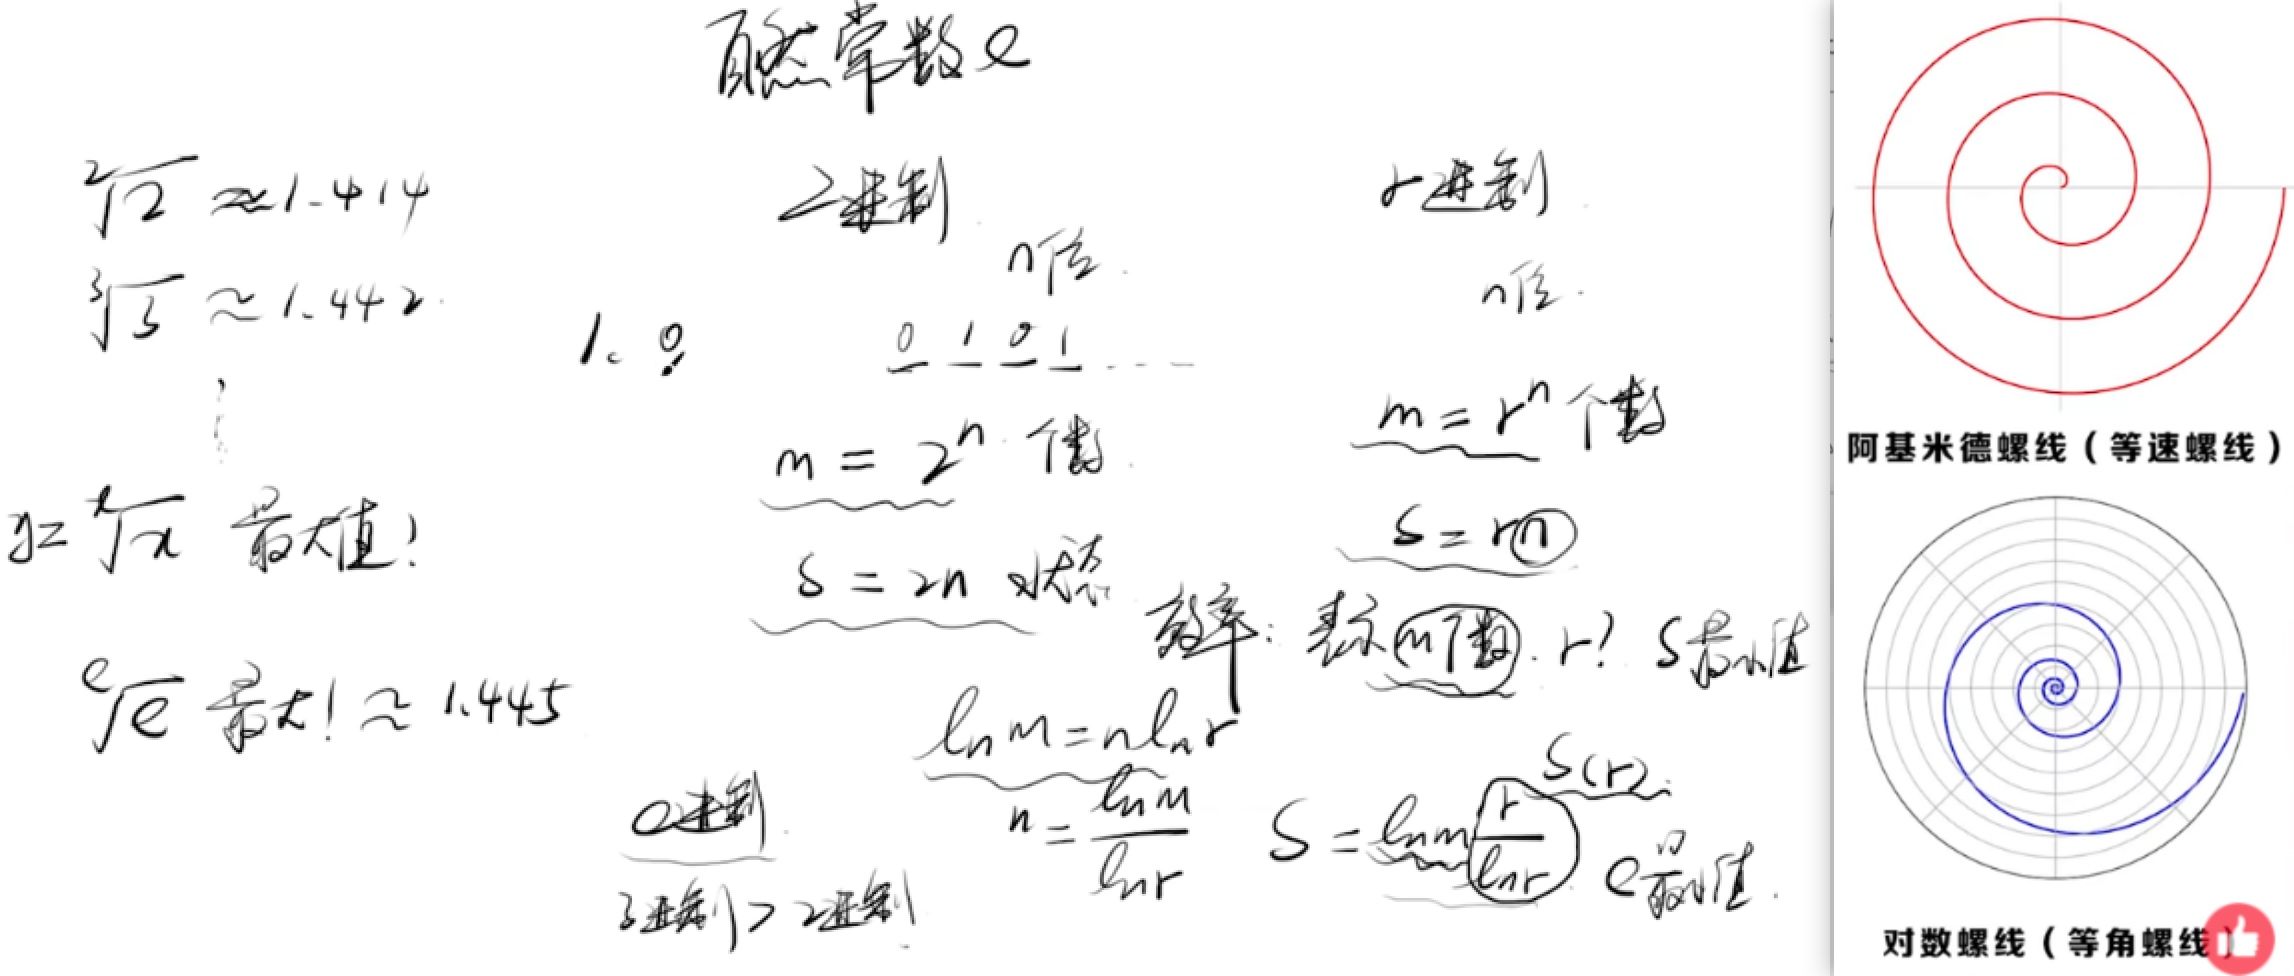 自然常数e
²√2 ≈ 1.414
³√3 ≈ 1.442
⋮
y = ˣ√x 最大值!
ᵉ√e 最大! ≈ 1.445
1. 0
2进制
n位
0 1 0 1 ……
m = 2ⁿ 个数
S = 2n 状态
r进制
n位
m = rⁿ 个数
S = rn
效率: 表示m个数. r? S最小值
ln m = n ln r
n = ln m / ln r
S = ln m r / ln r
S(r)
e 最小值.
e进制
3进制 > 2进制
阿基米德螺线（等速螺线）
对数螺线（等角螺线）